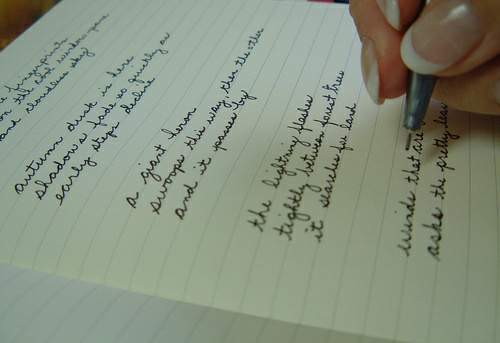 fingerprints
on the
and cloudless sky
autumn dusk is here
shadows fade so quickly as
early steps
a giant
swoops this way, then the other
and it passes by
the lightning flashes
tightly between forest trees
it searches for land
winds that are
asks the pretty